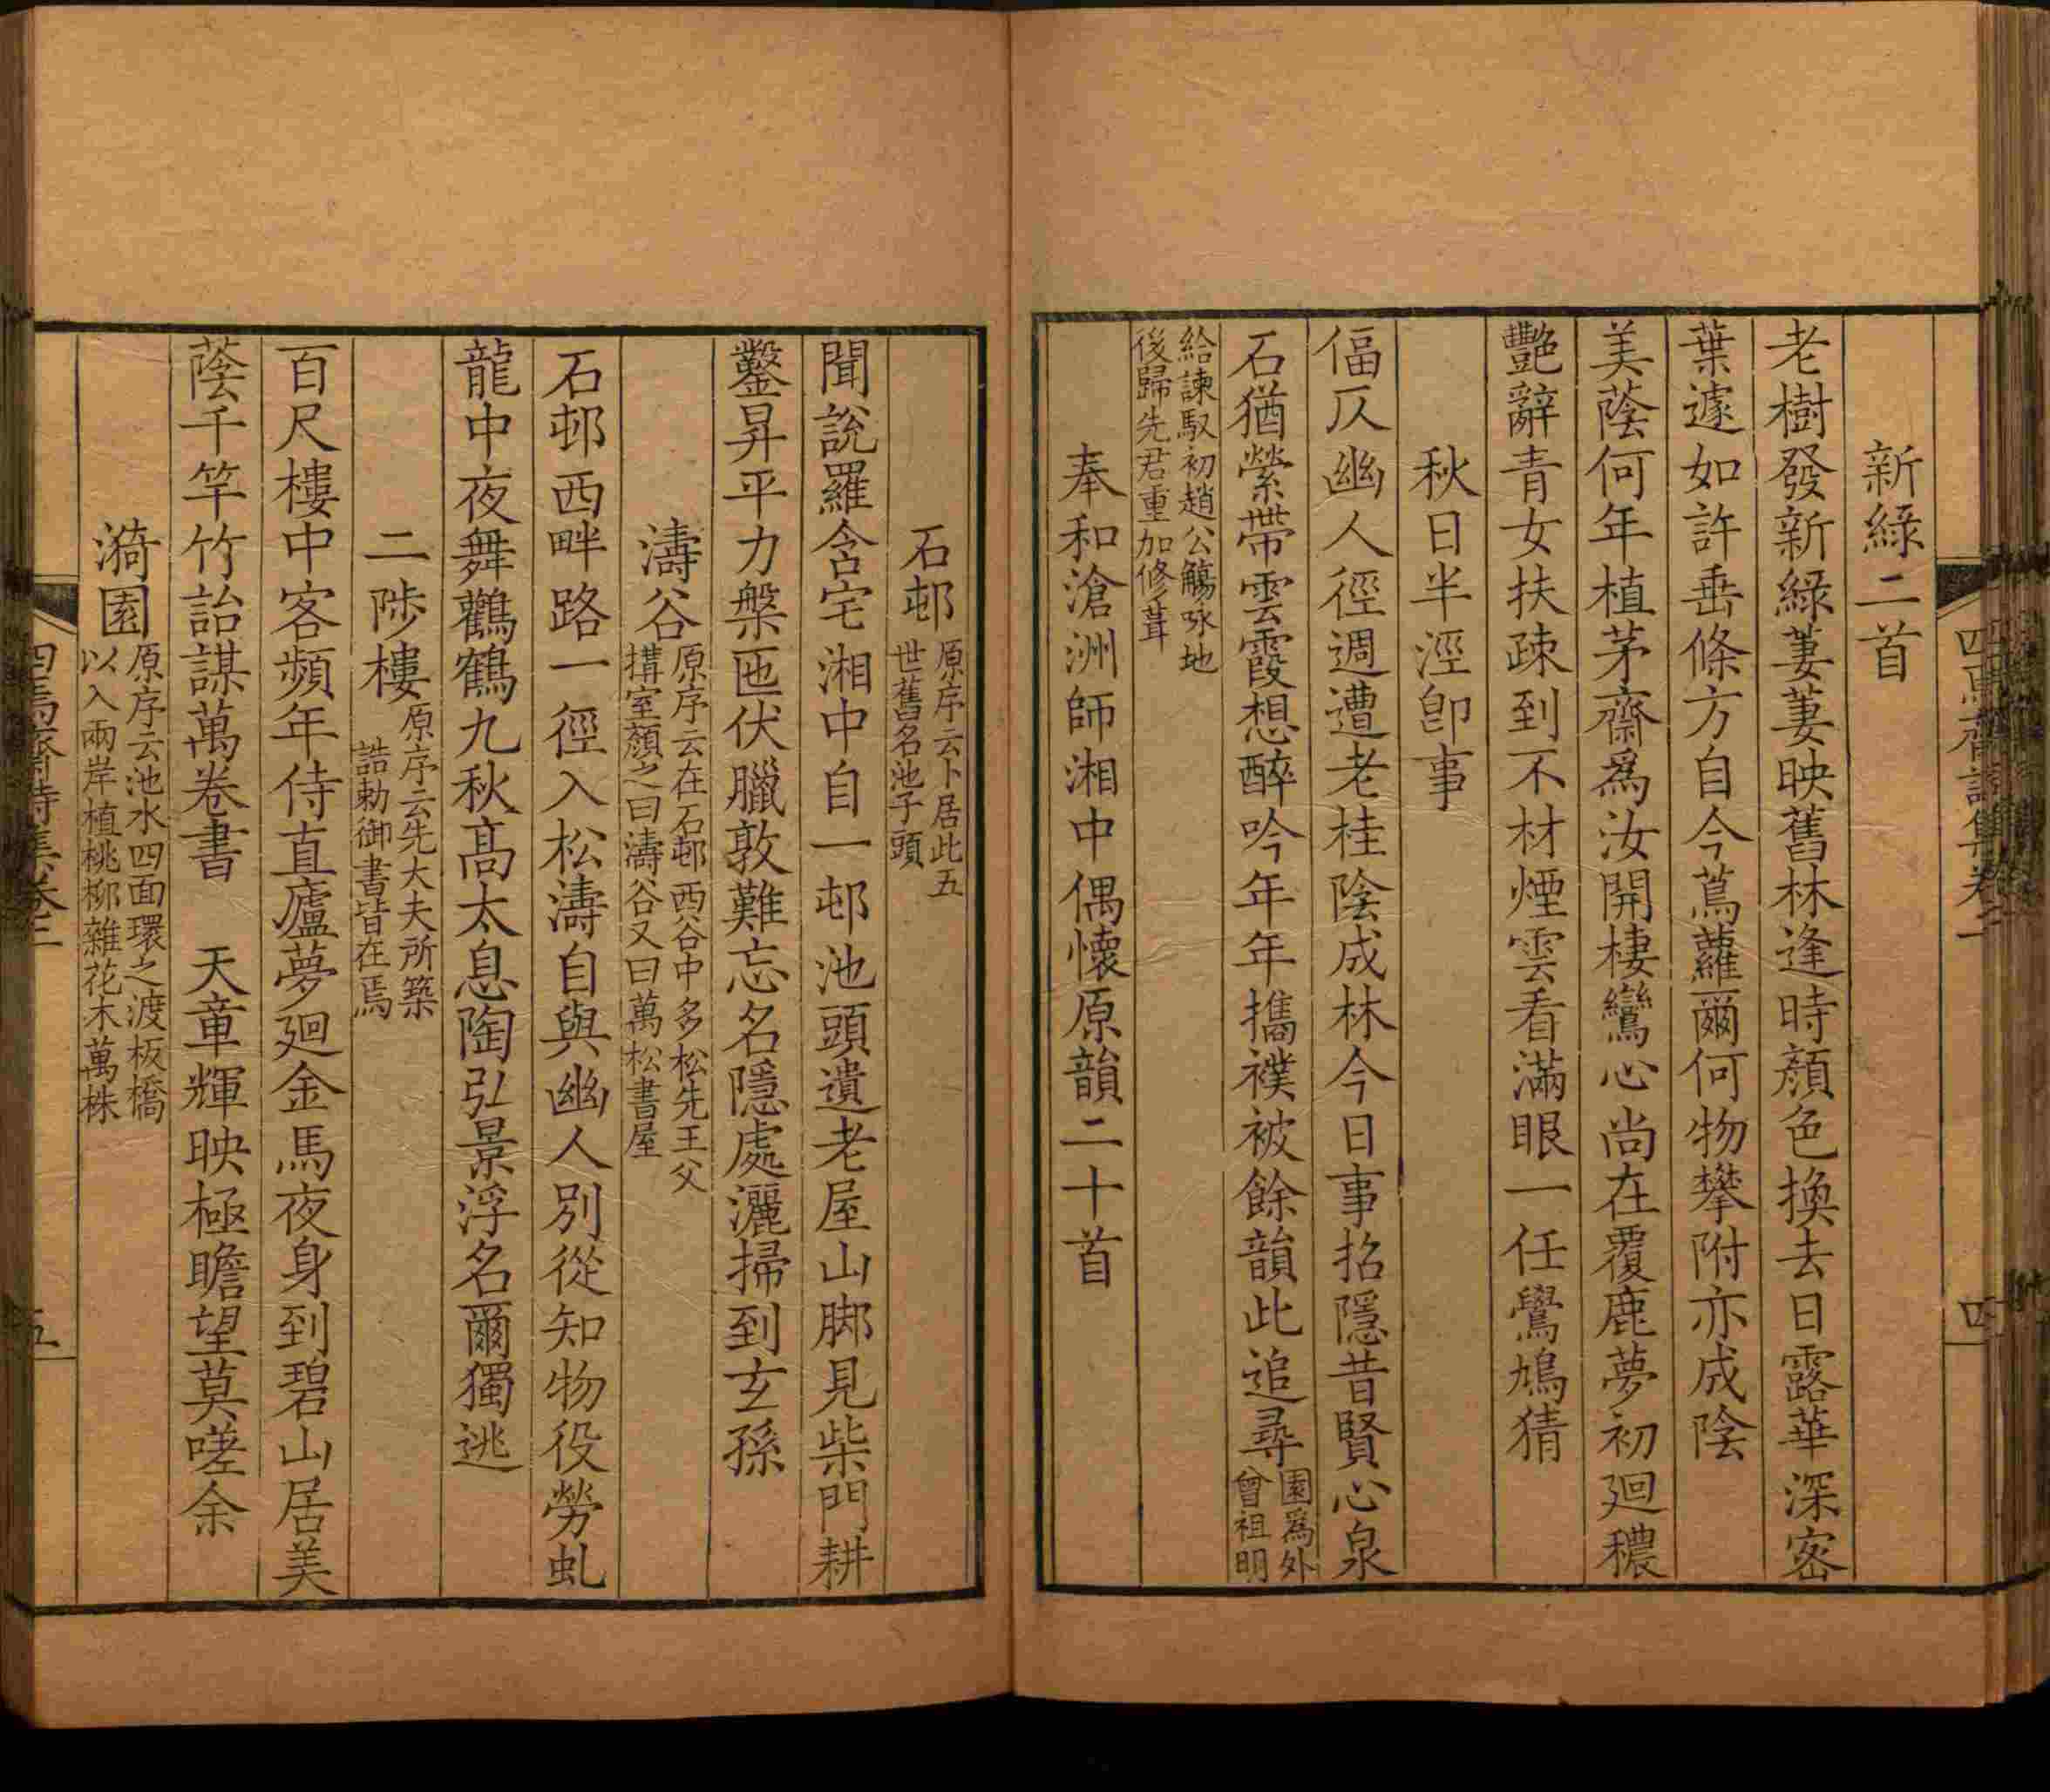 新綠二首
老樹發新綠萋萋映舊林逢時顏色換去日露華深密
葉遽如許垂條方自今蔦蘿爾何物攀附亦成陰
美蔭何年植茅齋爲汝開棲鸞心尚在覆鹿夢初廻穠
艷辭青女扶疎到不材煙雲看滿眼一任鷽鳩猜
秋日半淫卽事
偪仄幽人徑週遭老桂陰成林今日事招隱昔賢心泉
石猶縈帶雲霞想醉吟年年攜襆被餘韻此追尋園爲外
曾祖明
給諫馭初趙公觴咏地
後歸先君重加修葺
奉和滄洲師湘中偶懷原韻二十首
石邨原序云卜居此五
世舊名池子頭
聞說羅含宅湘中自一邨池頭遺老屋山脚見柴門耕
鑿昇平力槃匜伏臘敦難忘名隱處灑掃到玄孫
濤谷原序云在石邨西谷中多松先王父
搆室顏之曰濤谷又曰萬松書屋
石邨西畔路一徑入松濤自與幽人別從知物役勞虬
龍中夜舞鸛鶴九秋高太息陶弘景浮名爾獨逃
二陟樓原序云先大夫所築
誥勅御書皆在焉
百尺樓中客頻年侍直廬夢廻金馬夜身到碧山居美
蔭千竿竹詒謀萬卷書　天章輝映極瞻望莫嗟余
漪園原序云池水四面環之渡板橋
以入兩岸植桃柳雜花木萬株
五